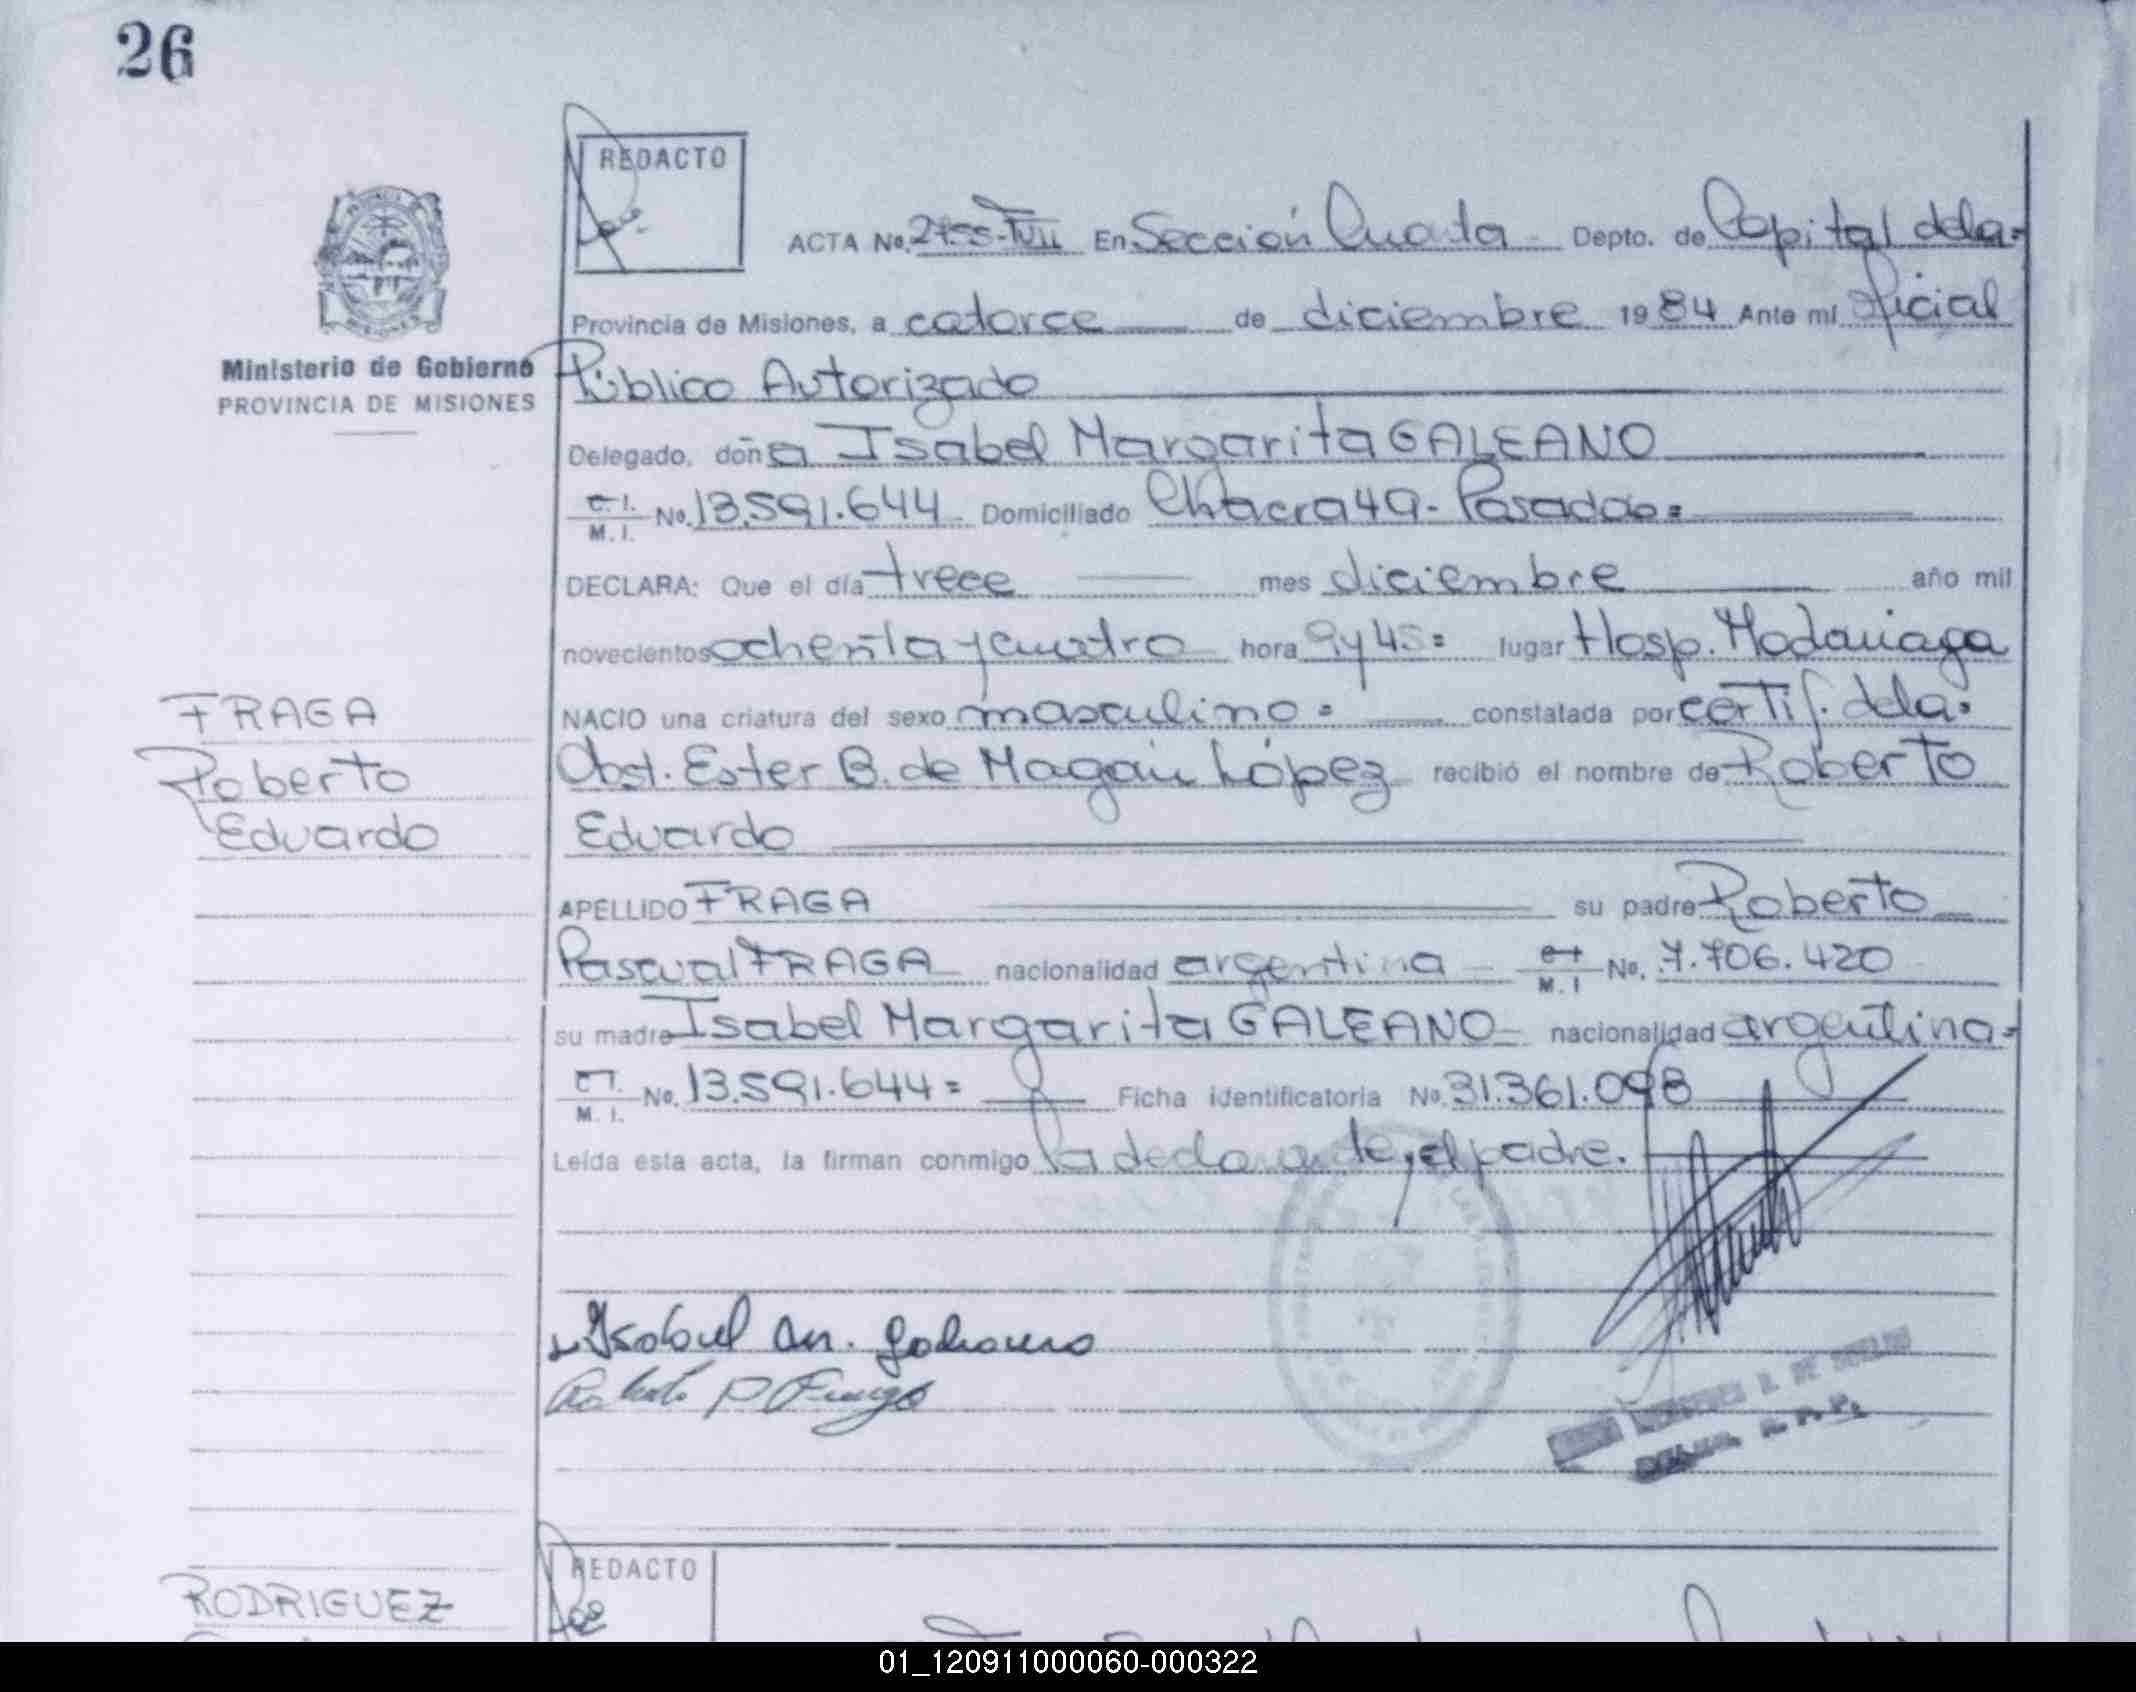 26
REDACTO
ACTA No. 2755-TVII En Sección Cuarta Depto. de Capital dela=
Provincia de Misiones, a catorce de diciembre 1984 Ante mi oficial
Ministerio de Gobierno
PROVINCIA DE MISIONES
Público Autorizado
Delegado, doña Isabel Margarita GALEANO
C.I. M.I. No. 13.591.644 Domiciliado Chacra 49- Posadas=
DECLARA: Que el día trece mes diciembre año mil
novecientos ochenta y cuatro hora 9y45= lugar Hosp. Madariaga
NACIO una criatura del sexo masculino= constatada por certif. dela=
Obst. Ester B. de Magán López recibió el nombre de Roberto
Eduardo
FRAGA
Roberto
Eduardo
APELLIDO FRAGA su padre Roberto
Pascual FRAGA nacionalidad argentina M.I No. 7.706.420
su madre Isabel Margarita GALEANO nacionalidad argentina=
M.I. No. 13.591.644= Ficha identificatoria No. 31.361.098
Leída esta acta, la firman conmigo la declarante, el padre.
Isabel M. Galeano
Roberto P Fraga
REDACTO
RODRIGUEZ
01_120911000060-000322